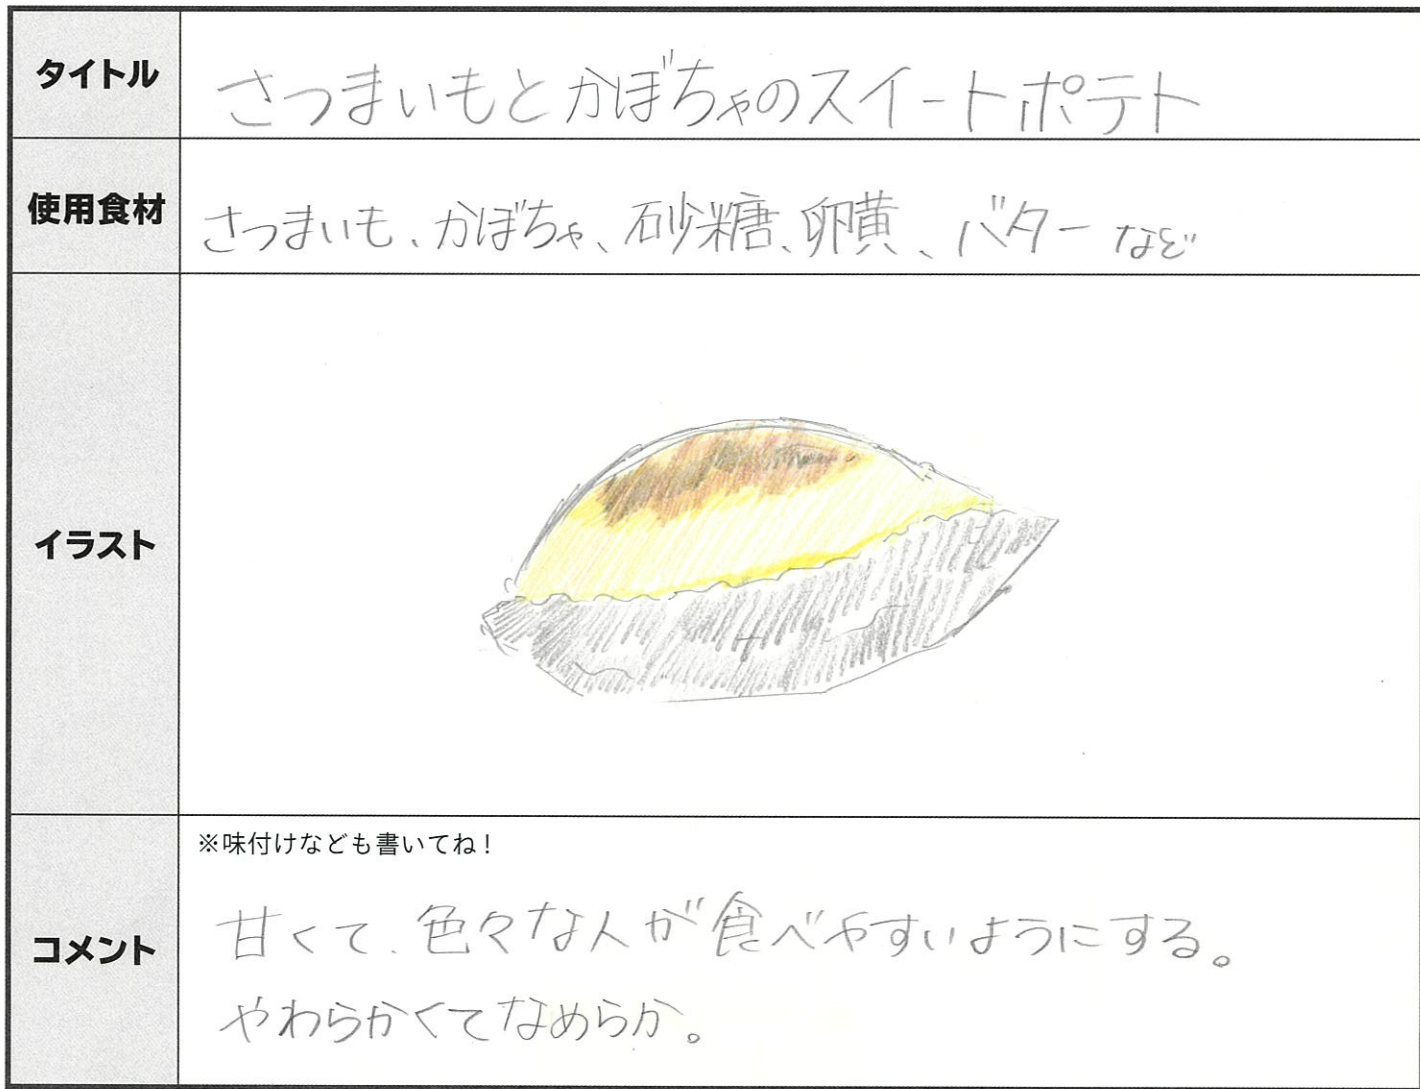 タイトル
さつまいもとかぼちゃのスイートポテト
使用食材
さつまいも、かぼちゃ、砂糖、卵黄、バター など
イラスト
コメント
※味付けなども書いてね！
甘くて、色々な人が食べやすいようにする。
やわらかくてなめらか。